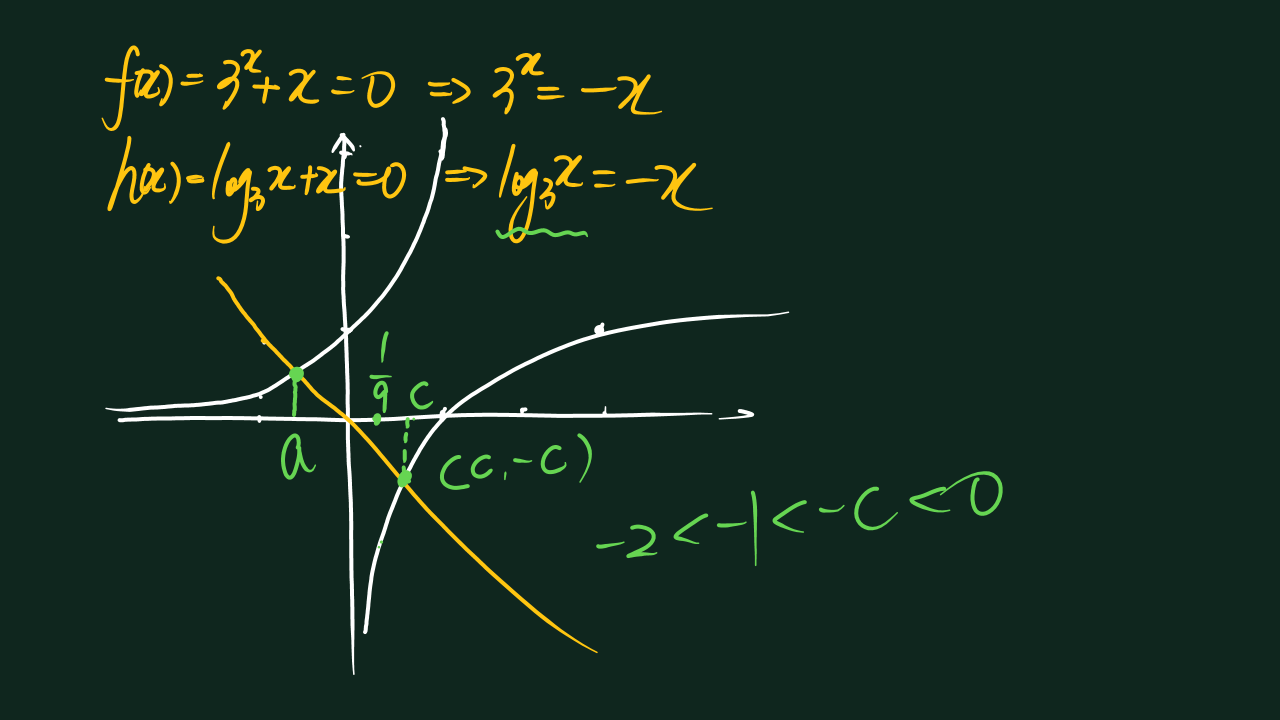 f(x) = 3^x + x = 0 => 3^x = -x
h(x) = log₃x + x = 0 => log₃x = -x
1/9
c
a
(c, -c)
-2 < -1 < -c < 0